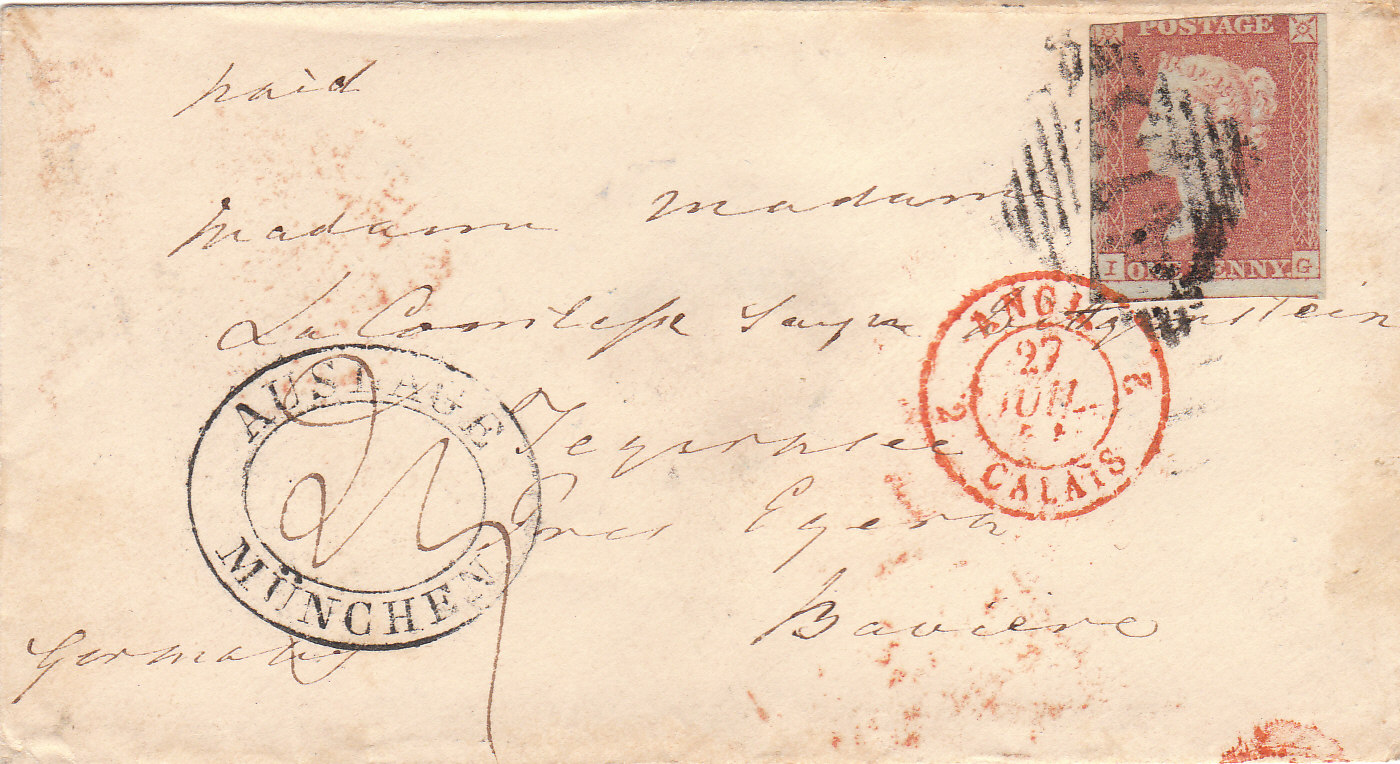 paid
POSTAGE
I ONE PENNY G
Madame Madame
La Comtesse Sayn Wittgenstein
ANGL.
2 27 2
JUIL.
CALAIS
AUSLAGE
MÜNCHEN
Tegernsee
Pres Egern
Bavière
Germany